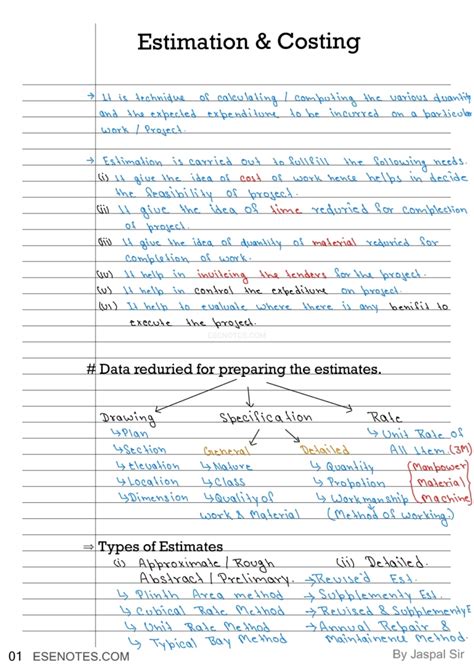 Estimation & Costing
→ It is technique of calculating / computing the various quantity
and the expected expenditure to be incurred on a particular
work / Project.
→ Estimation is carried out to fullfill the following needs.
(i) It give the idea of cost of work hence helps in decide
the feasibility of project.
(ii) It give the idea of time reduried for complection
of project.
(iii) It give the idea of quantity of material reduried for
completion of work.
(iv) It help in inviteing the tenders for the project.
(v) It help in control the expediture on project.
(vi) It help to evaluate where there is any benifit to
execute the project.
ESENOTES.COM
# Data reduried for preparing the estimates.
Drawing Specification Rate
↳ Plan ↳ Unit Rate of
↳ Section General Detailed All Item. (3M)
↳ elevation ↳ Nature ↳ Quantity (Manpower
↳ Location ↳ Class ↳ Propotion Material
↳ Dimension ↳ Quality of ↳ Workmanship Machine)
work & Material (Method of working)
⇒ Types of Estimates
(i) Approximate / Rough (ii) Detailed.
Abstract / Prelimary. → Revised Est.
↳ Plinth Area method → Supplementy Est.
↳ Cubical Rate Method → Revised & Supplementy E
↳ Unit Rate Method → Annual Repair &
↳ Typical Bay Method Maintainence Method.
01 ESENOTES.COM By Jaspal Sir